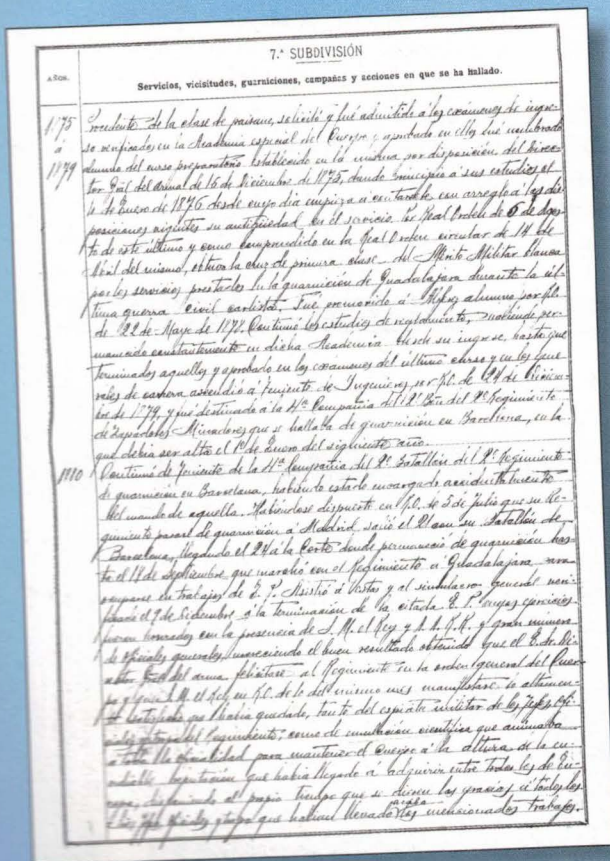 7.ª SUBDIVISIÓN
AÑOS.
Servicios, vicisitudes, guarniciones, campañas y acciones en que se ha hallado.
1875 Procedente de la clase de paisano, solicitó y fué admitido á los exámenes de ingre-
á so verificados en la Academia especial del Cuerpo y aprobado en ellos fué nombrado
1879 alumno del curso preparatorio establecido en la misma por disposición del Direc-
tor Gral del arma de 15 de Diciembre de 1875, dando principio a sus estudios el
1º de Enero de 1876 desde cuyo dia empieza a contarsele con arreglo a las dis-
posiciones vigentes su antigüedad en el servicio. Por Real Orden de 5 de
to de este último y como comprendido en la Real Orden circular de 14 de
Abril del mismo, obtuvo la cruz de primera clase del Mérito Militar blanca
por los servicios prestados en la guarnición de Guadalajara durante la úl-
tima guerra civil carlista. Fue promovido á Alférez alumno por
de 22 de Mayo de 187 Continuó los estudios de reglamento, habiendo per-
manecido constantemente en dicha Academia desde su ingreso, hasta que
terminados aquellos y aprobado en los examenes del último curso y en los gene-
rales de carrera ascendió a Teniente de Ingenieros, por R.O. de 24 de Diciem-
bre de 1879, y fue destinado a la 4ª Compañia del 2º Bón del 2º Regimiento
de Zapadores Minadores que se hallaba de guarnición en Barcelona, en la
que debia ser alta el 1º de Enero del siguiente año.
1880 Continuó de Teniente de la 4ª Compañia del 2º Batallón del 2º Regimiento
de guarnición en Barcelona, habiendo estado encargado accidentalmente
del mando de aquella. Habiendose dispuesto en R.O. de 3 de Julio que su Re-
gimiento pasara de guarnición a Madrid salió el 21 con su Batallón de
Barcelona, llegando el 24 á la Corte donde permaneció de guarnición has-
ta el 18 de Septiembre, que marchó con el Regimiento a Guadalajara para
ocuparse en trabajos de E. P. Asistió á vistas y al simulacro general veri-
ficado el 9 de Diciembre á la terminación de la citada E. P. cuyos ejercicios
fueron honrados con la presencia de S. M. el Rey y A.A. R.R. y gran numero
de Oficiales generales, mereciendo el buen resultado obtenido que el E. S. Di-
rector Gral del arma felicitase al Regimiento en la orden general del Cuer-
po y que S. M. el Rey en R.O. de 10 del mismo mes manifestase lo altamen-
te satisfecho que habia quedado, tanto del espiritu militar de los Jefes Ofi-
ciales y tropa del Regimiento, como de emulación cientifica que animaba
a toda la oficialidad para mantener el Cuerpo a la altura de la en-
vidiable reputación que habia llegado a adquirir entre todos los de Eu-
ropa, disponiendo al propio tiempo que se dieran las gracias á todos los
Jefes, oficiales y tropa que habian llevado a cabo los mencionados trabajos.